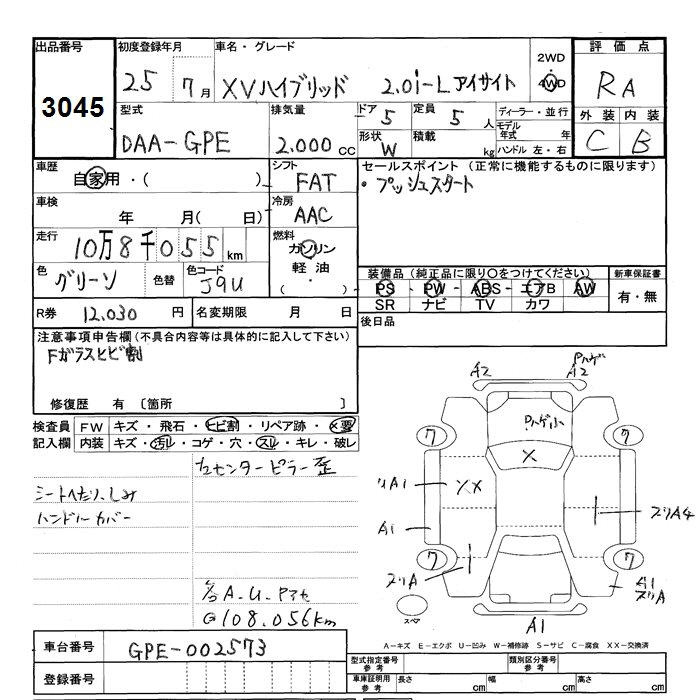 出品番号
3045
初度登録年月
25 7月
車名・グレード
XVハイブリッド 2.0i-Lアイサイト
2WD
4WD
評価点
RA
外装 内装
C B
型式
DAA-GPE
排気量
2.000 CC
ドア 5
定員 5 人
形状 W
積載 kg
ディーラー・並行
モデル年式 年
ハンドル 左・右
車歴
自家用・( )
シフト
FAT
セールスポイント (正常に機能するものに限ります)
・プッシュスタート
車検
年 月( 日)
冷房
AAC
走行
10万8千055km
燃料
ガソリン
軽油
( ・ )
色
グリーン
色替
色コード
J9U
装備品(純正品に限り○をつけてください)
PS・PW・ABS・エアB・AW
SR ナビ TV カワ
新車保証書
有・無
R券 12.030 円
名変期限 月 日
後日品
注意事項申告欄(不具合内容等は具体的に記入して下さい)
Fガラスヒビ割
修復歴 有 〔箇所 〕
検査員記入欄
FW キズ・飛石・ヒビ割・リペア跡・×要
内装 キズ・汚れ・コゲ・穴・スレ・キレ・破レ
右センターピラー歪
シートへたり、しみ
ハンドルカバー
A.U.
108.056km
A2 A2 Pハゲ
Pハゲ小
7 7
X
XX
リA1
ズリA4
A1
7 7
ズリA
A1
ズリA
スペア
A1
A-キズ E-エクボ U-凹み W-補修跡 S-サビ C-腐食 XX-交換済
車台番号
GPE-002573
登録番号
型式指定番号 参考
類別区分番号 参考
車庫証明用 参考
長さ cm
幅 cm
高さ cm